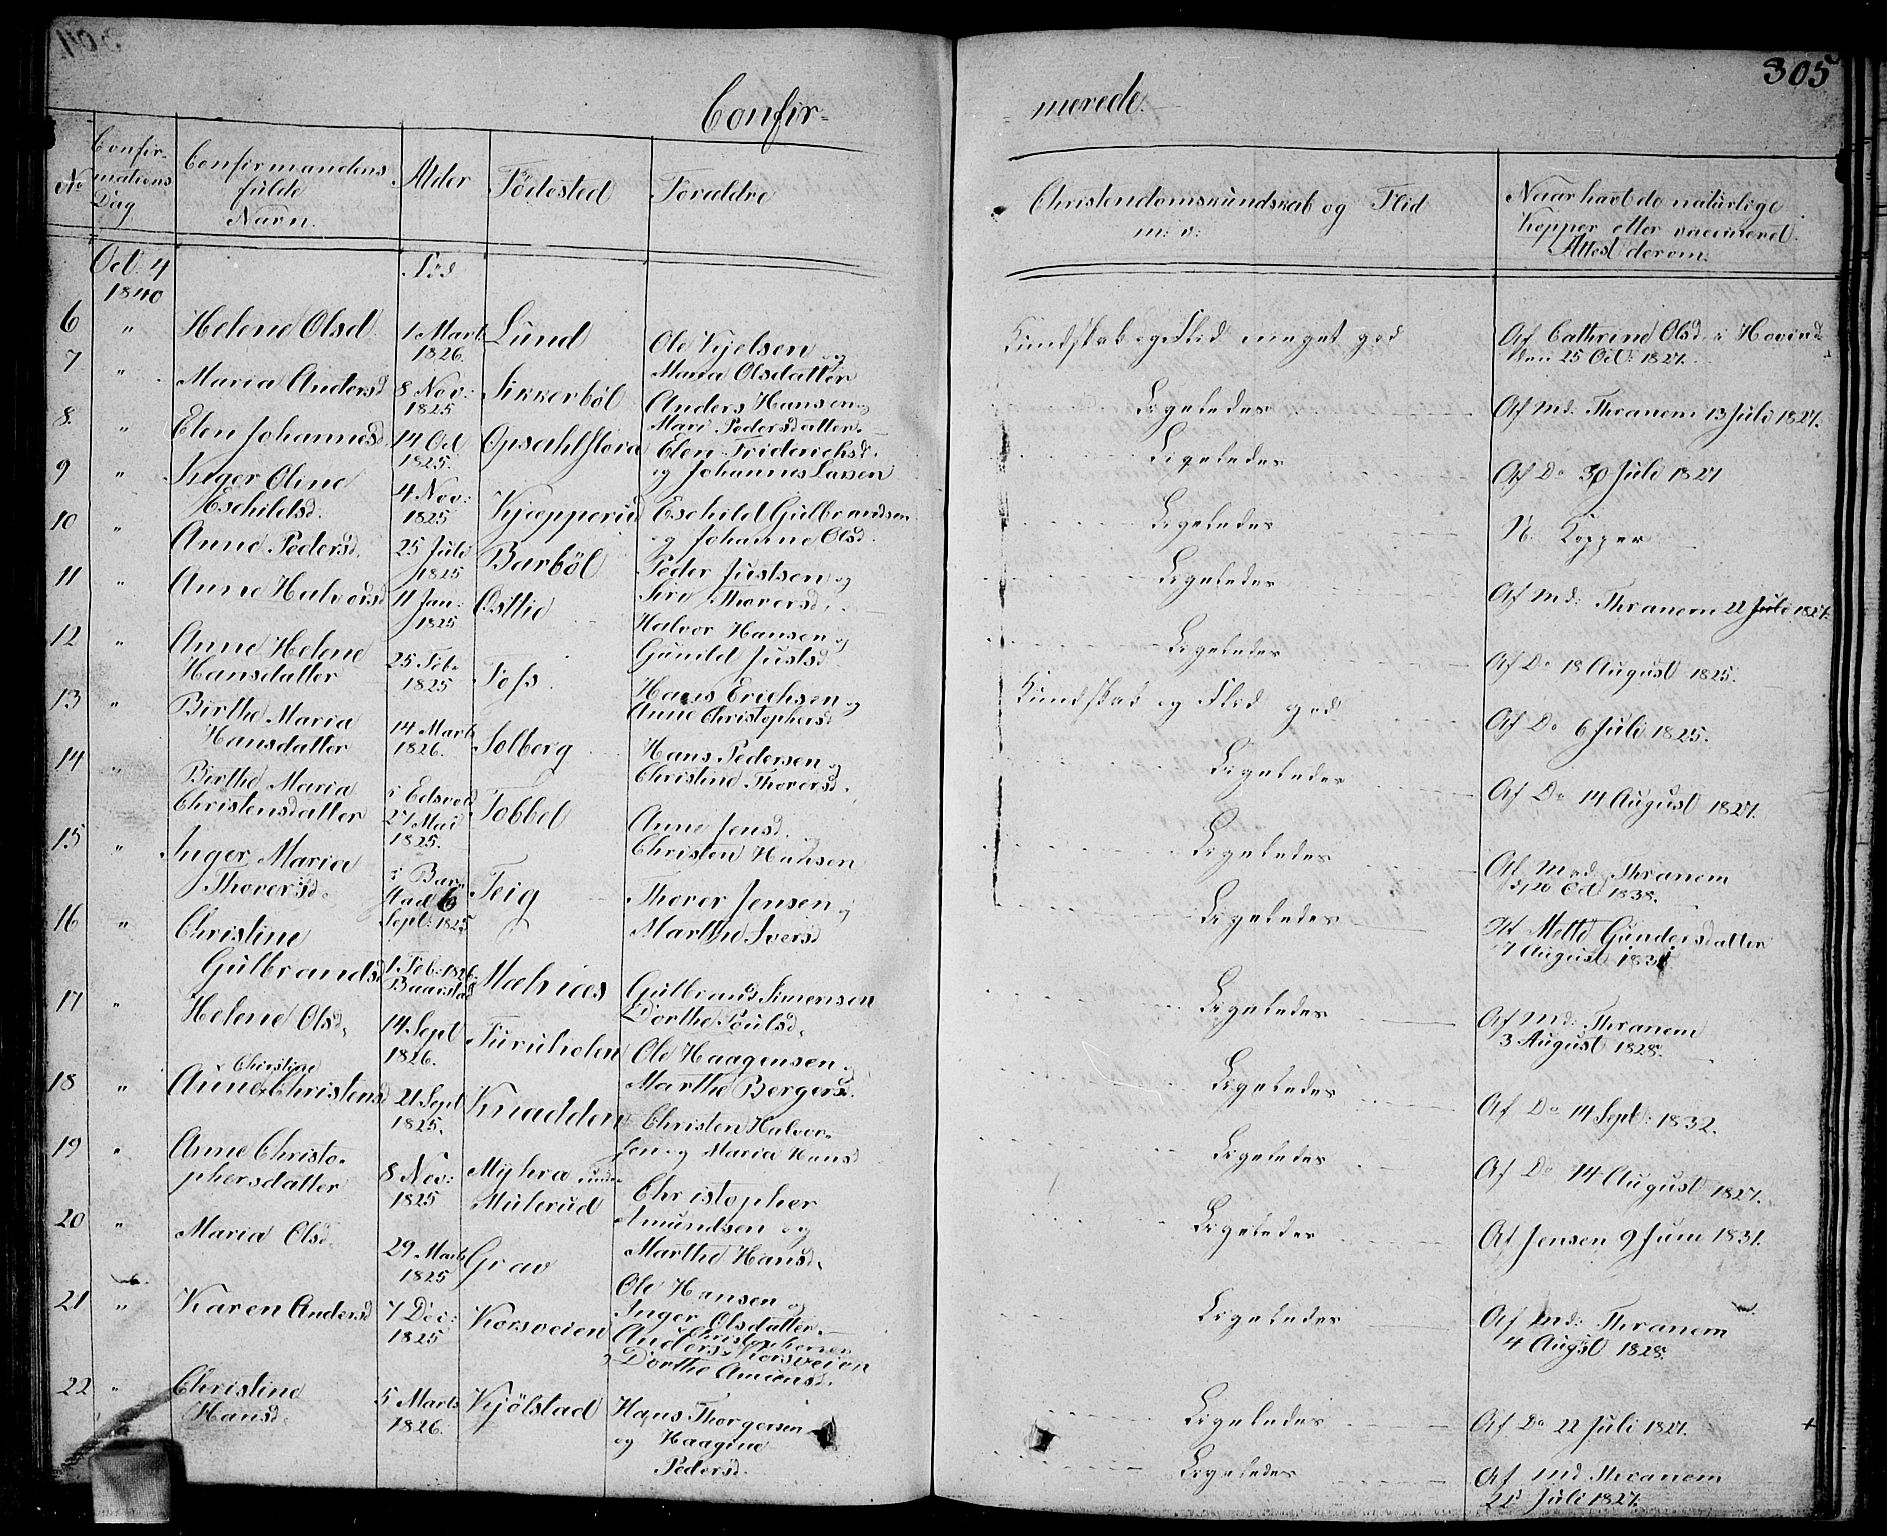 305
Confir-
merede.
No
Confir-
mations
Dag
Confirmandens
fulde
Navn.
Alder
Födested
Foraldre
Christendomskundskab og Flid
m: v:
Naar havt de naturlige
Kopper eller vaccineret
Attest derom.
Oct. 4
1840
Föd
6 " Helene Olsd. 1 Marts 1826. Lund Ole Kjelsen og
Maria Olsdatter
Kundskab og Flid meget god
Af Cathrine Olsd. i Hovind
den 25 Oct: 1827.
7 " Maria Andersd 8 Nov: 1825 Sikkerböl Anders Hansen og
Mari Pedersdatter.
Ligeledes
Af Md: Thranem 13 Juli 1827.
8. " Elen Johannesd 14 Oct 1825. Opsahl store Elen Friderichsd.
og Johannes Larsen
Ligeledes
Af Do 30 Juli 1827
9 " Inger Oline
Eschildsd. 4 Nov: 1825 Kjæpperud Eschild Gulbrandsen
og Johanne Olsd.
Ligeledes
N. Kopper
10 " Anne Pedersd. 25 Juli 1825 Barböl Peder Justsen og
Siri Thorersd.
Ligeledes
Af Md: Thranem 22 Juli 1827.
11 " Anne Halvorsd 11 Jan: 1825 Halvor Hansen og
Gunild Justsd
Ligeledes
Af Do 18 August 1825.
12 " Anne Helene
Hansdatter 25 Feb. 1825 Foss. Hans Erichsen og
Anne Christophersd
Kundskab og Flid god
Af Do 6 Juli 1825.
13 " Birthe Maria
Hansdatter 14 Marts 1826. Solberg Hans Pedersen og
Christine Thorersd.
Ligeledes
Af Do 14 August 1827.
14 " Birthe Maria
Christensdatter i Edsvold
27 Mai
1825. Tobbel Anne Jensd. og
Christen Hansen
Ligeledes
Af Mad. Thranem
20 Oct. 1838.
15 " Inger Maria
Thorersd. i Baar
stad 6
Sept: 1825 Teig Thorer Jensen og
Marthe Iversd
Ligeledes
Af Mette Gundersdatter
7 August 1831
16 " Christine
Gulbrandsd 1. Feb: 1826
Baarstad Mæhnes Gulbrand Simensen
Dorthe Poulsd.
Ligeledes
Af Md: Thranem
3 August 1828.
17 " Helene Olsd. 14 Sept 1826. Furuholen Ole Haagensen og
Marthe Bergersd.
Ligeledes
Af Do 14 Sept: 1832.
18 " Anne Christine Christensd 21 Sept 1825. Knadden Christen Halvor-
sen og Maria Hansd
Ligeledes
Af Do 14 August 1827.
19 " Anne Christo-
phersdatter 8 Nov: 1825 Myhra under
Mulerud Christopher
Amundsen og
Marthe Hansd.
Ligeledes
Af Jensen 9 Juni 1831.
20 " Maria Olsd. 29 Marts 1825 Grav Ole Hansen og
Inger Olsdatter.
Ligeledes
Af Md: Thranem
4 Augst 1828.
21 " Karen Andersd 7 Dec: 1825 Korsveien Anders Christophersen Korsveien
og Dorthe Amundsd.
Ligeledes
Af Do 22 Juli 1827.
22 " Christine
Hansd. 5 Marts 1826. Kjölstad Hans Thorgersen
og Haagine
Pedersd.
Ligeledes
Af Md Thranem
21 Juli 1827.